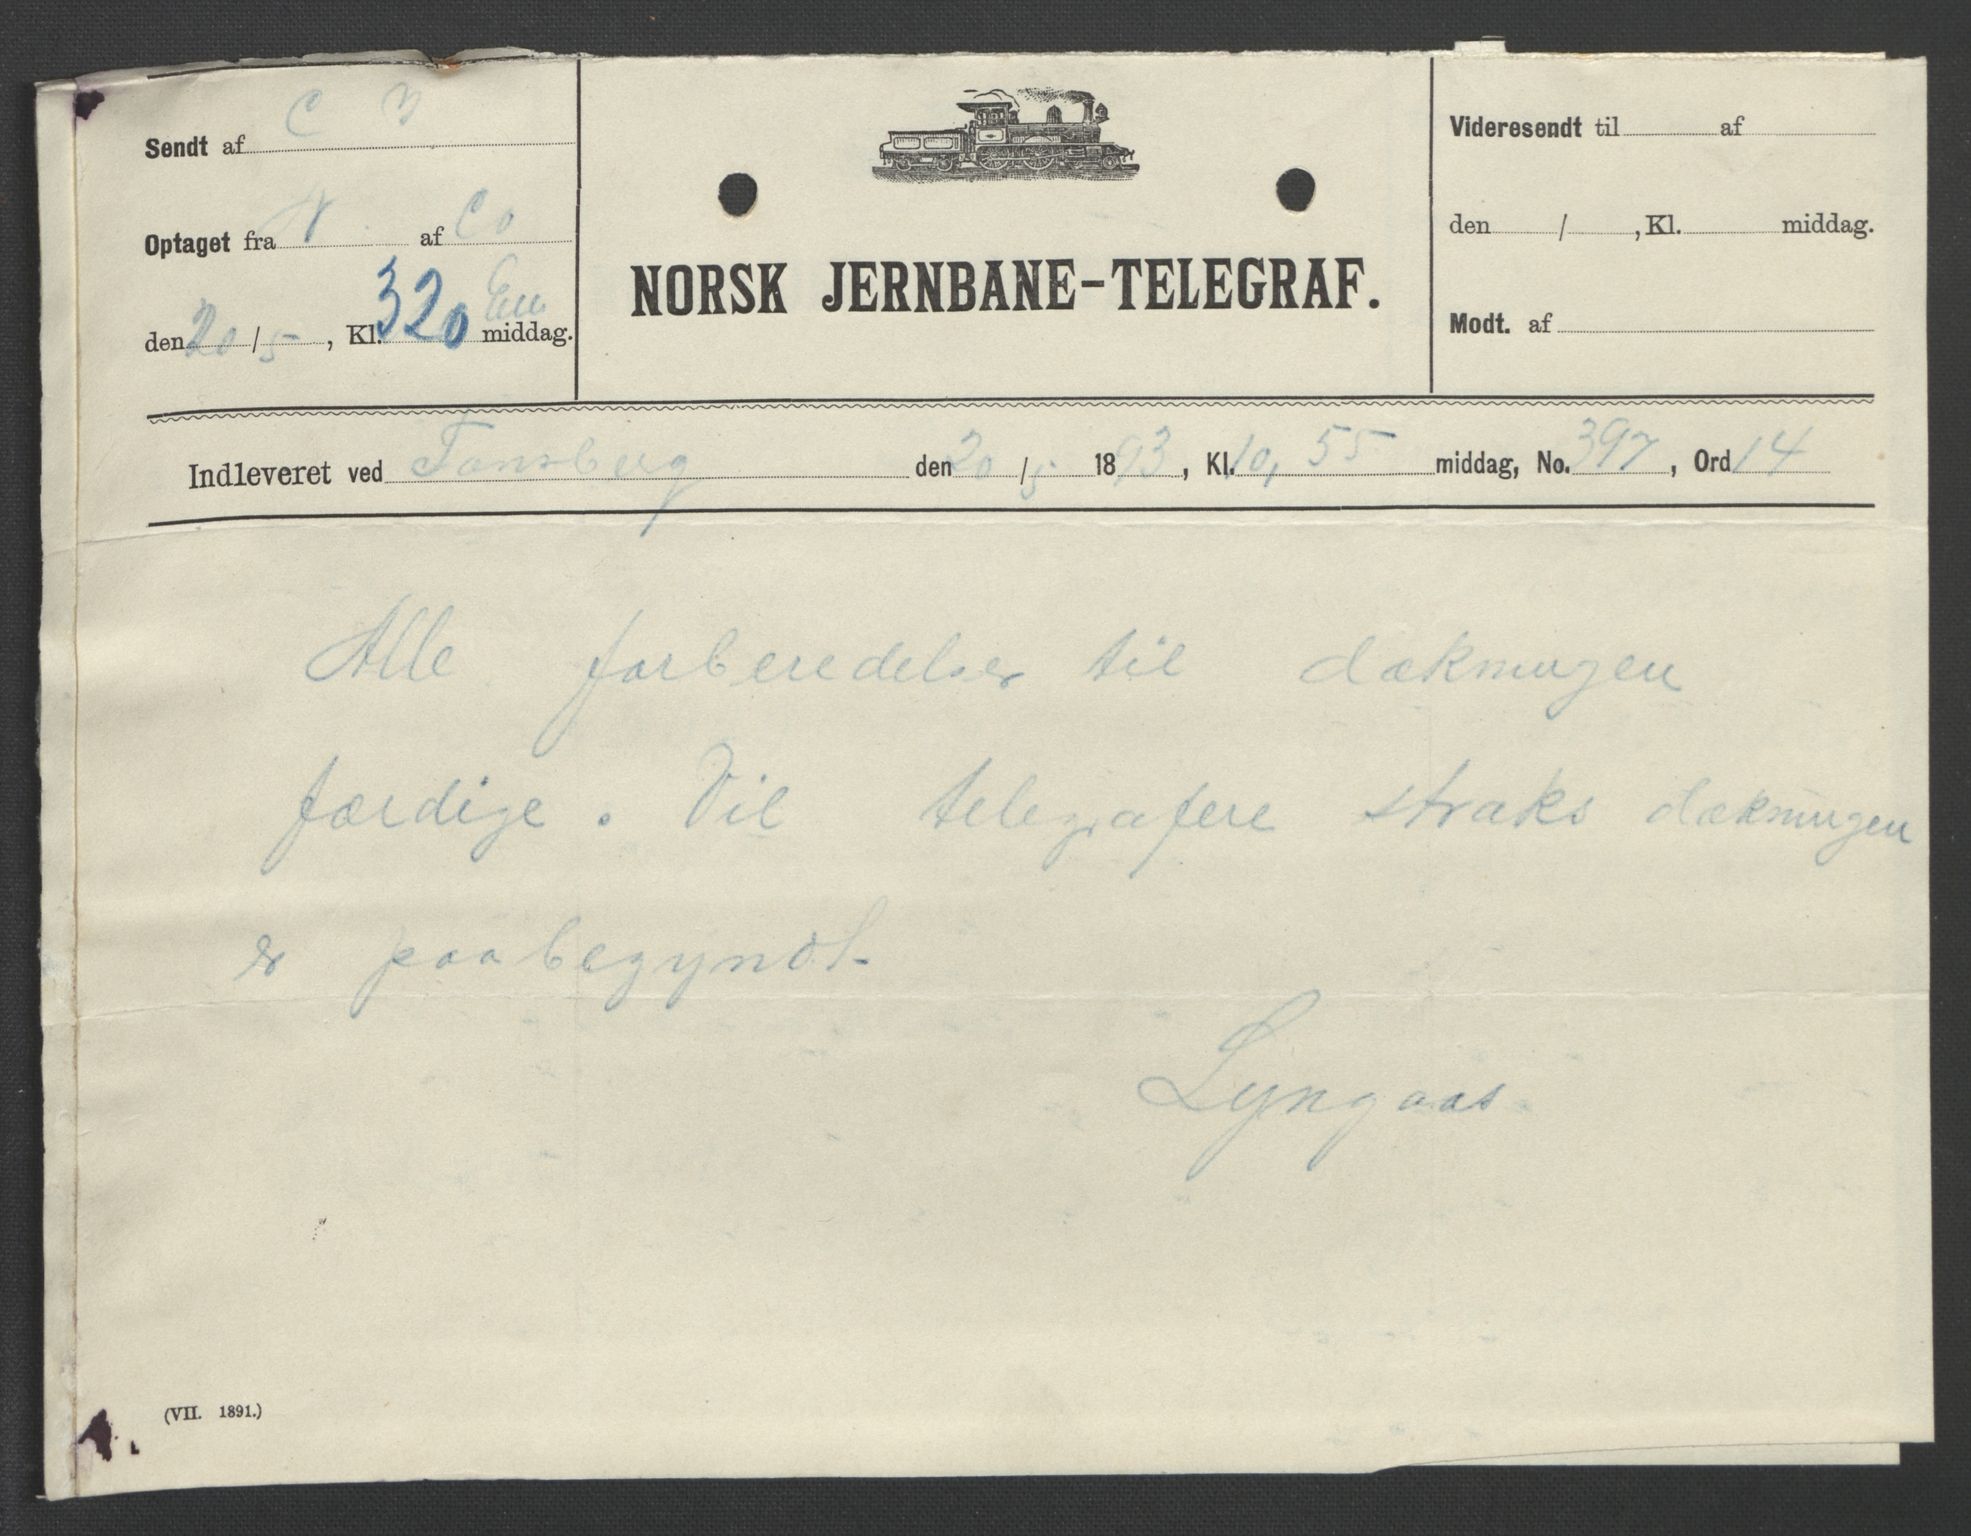 Sendt af C
Optaget fra N. af Co
den 20/5, Kl. 320 Em middag.
NORSK JERNBANE-TELEGRAF.
Videresendt til af
den / , Kl. middag.
Modt. af
Indleveret ved Tønsberg den 20/5 1893, Kl. 10,55 middag, No. 397, Ord 14
Alle forberedelser til dækningen
færdige. Vil telegrafere straks dækningen
er paabegyndt.
Lyngaas
(VII. 1891.)